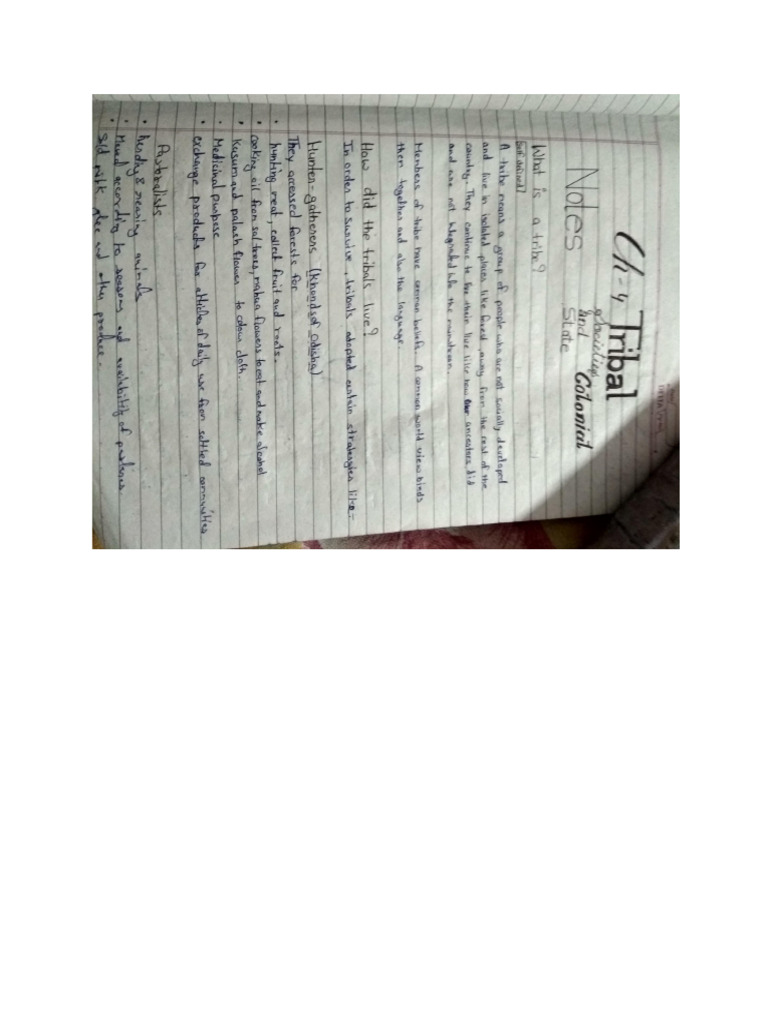 Ch-4 Tribal
Societies
and Colonial
State
Notes
What is a tribe?
A tribe means a group of people who are not socially developed
and live in isolated places like forest, away from the rest of the
country. They continue to live their live like how their ancestors did
and are not integrated like the mainstream.
Members of tribe have common beliefs. A common world view binds
them together and also the language.
How did the tribals live?
In order to survive, tribals adopted certain strategies like:-
Hunter-gatherers (Khonds of Odisha)
They accessed forests for
• hunting meat, collect fruit and roots.
• cooking oil from sal trees, mahua flowers to eat and make alcohol
• Kusum and palash flowers to colour cloth.
• Medicinal purpose
• exchange products for articles of daily use from settled communities
Pastoralists
• herding & rearing animals
• Moved according to seasons and availability of pastures.
• Sold milk, ghee and other produce.